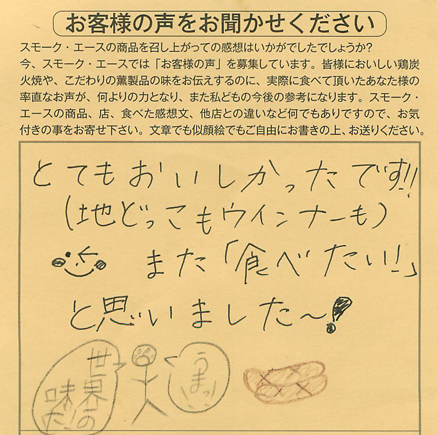 お客様の声をお聞かせください
スモーク・エースの商品を召し上がっての感想はいかがでしたでしょうか?
今、スモーク・エースでは「お客様の声」を募集しています。皆様においしい鶏炭
火焼や、こだわりの薫製品の味をお伝えするのに、実際に食べて頂いたあなた様の
率直なお声が、何よりの力となり、また私どもの今後の参考になります。スモーク・
エースの商品、店、食べた感想文、他店との違いなど何でもありですので、お気
付きの事をお寄せ下さい。文章でも似顔絵でもご自由にお書きの上、お送りください。
とてもおいしかったです!!
(地どっこもウインナーも)
また「食べたい!」
と思いました〜!
世界の
味だ!
うまっ